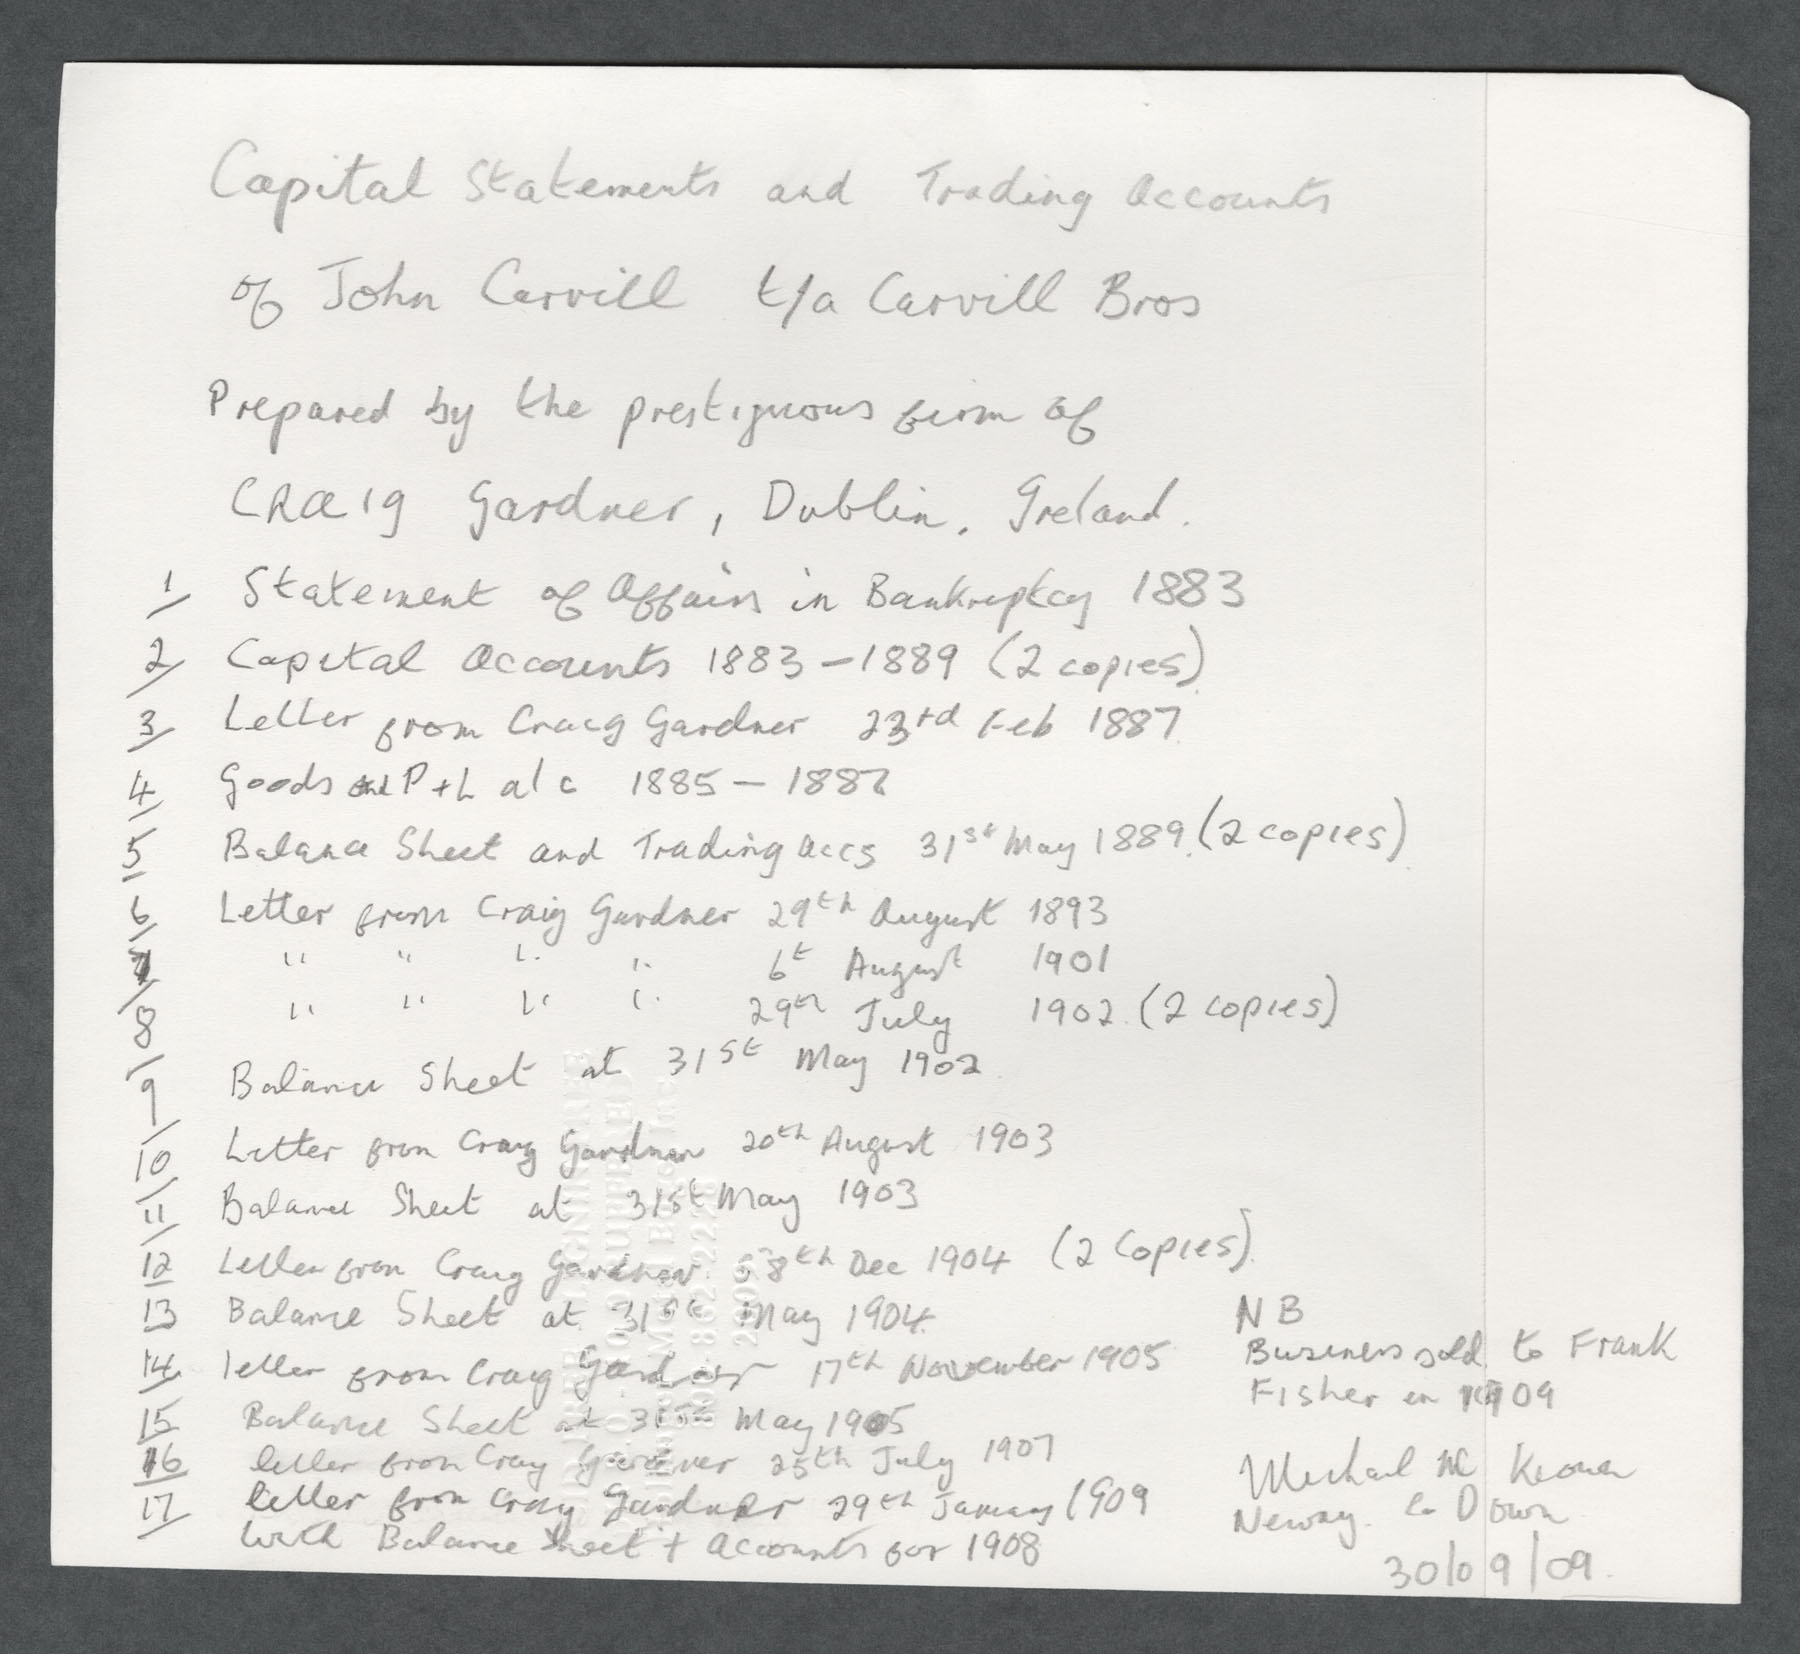 Capital Statements and Trading Accounts
of John Carvill t/a Carvill Bros
Prepared by the prestiguous firm of
CRAIG Gardner, Dublin, Ireland.
1/ Statement of Affairs in Bankruptcy 1883
2/ Capital Accounts 1883 - 1889 (2 copies)
3/ Letter from Craig Gardner 23rd Feb 1887
4/ Goods and P+L a/c 1885 - 1887
5/ Balance Sheet and Trading Accs 31st May 1889. (2 copies)
6/ Letter from Craig Gardner 29th August 1893
7/ " " " " 6t August 1901
8/ " " " " 29th July 1902. (2 copies)
9/ Balance Sheet at 31st May 1902
10/ Letter from Craig Gardner 20th August 1903
11/ Balance Sheet at 31st May 1903
12 Letter from Craig Gardner 8th Dec 1904 (2 Copies)
13 Balance Sheet at 31st May 1904
14 letter from Craig Gardner 17th November 1905
15 Balance Sheet at 31st May 1905
16 letter from Craig Gardner 25th July 1907
17 letter from Craig Gardner 29th January 1909
with Balance Sheet + Accounts for 1908
NB
Business sold to Frank
Fisher in 1909
Michael Mc Keown
Newry. Co Down
30/09/09.